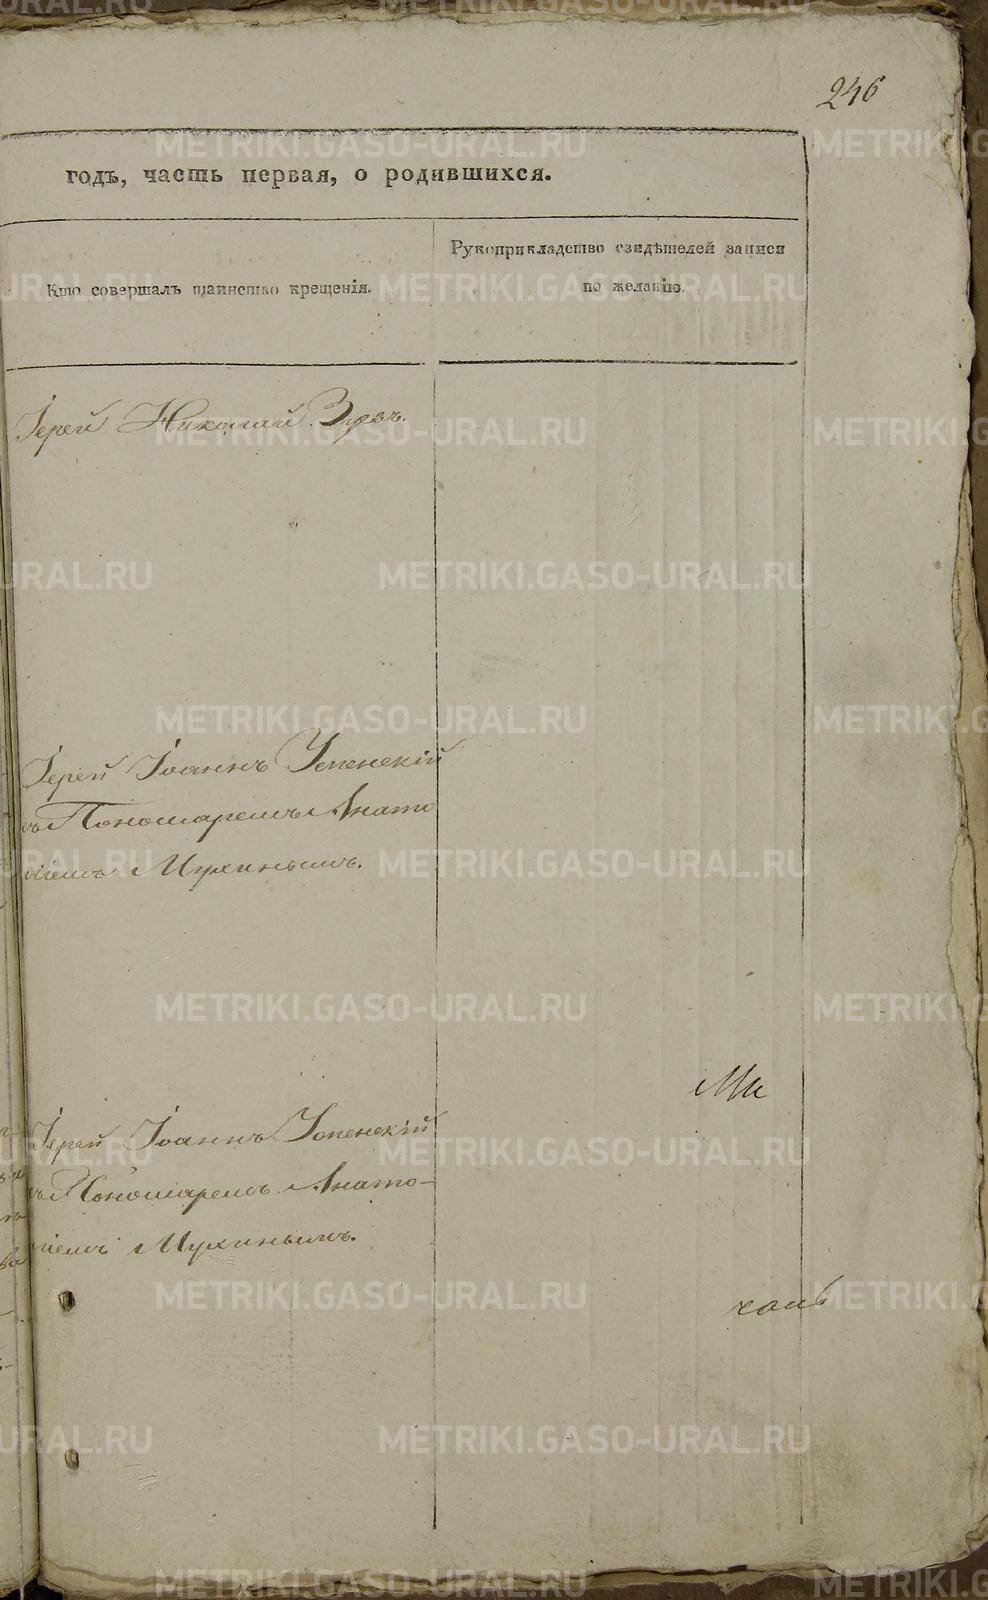 246
годъ, часть первая, о родившихся.
Кто совершалъ таинство крещенія.
Рукоприкладство свидѣтелей записи
по желанію.
Іерей Николай
Іерей Іоаннъ Успенскій
съ Пономаремъ Анато
ліемъ Мухинымъ.
Ми
Іерей Іоаннъ Успенскій
съ Пономаремъ Анато-
ліемъ Мухинымъ.
METRIKI.GASO-URAL.RU